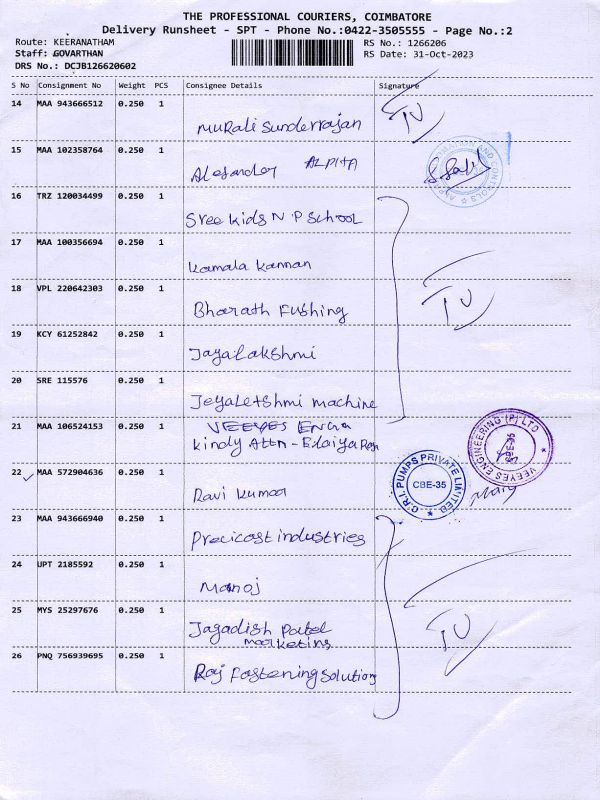 THE PROFESSIONAL COURIERS, COIMBATORE
Delivery Runsheet - SPT - Phone No.:0422-3505555 - Page No.:2
Route: KEERANATHAM RS No.: 1266206
Staff: GOVARTHAN RS Date: 31-Oct-2023
DRS No.: DCJB126620602
S No Consignment No Weight PCS Consignee Details Signature
14 MAA 943666512 0.250 1
Murali Sunderrajan
15 MAA 102358764 0.250 1
ALPHA
16 TRZ 120034499 0.250 1
Sree kids N P School
17 MAA 100356694 0.250 1
Kamala Kannan
18 VPL 220642303 0.250 1
Bharath Fushing
19 KCY 61252842 0.250 1
Jayalakshmi
20 SRE 115576 0.250 1
Jeyaletshmi machine
21 MAA 106524153 0.250 1
VEEYES ENGG
Kindy Attn - Elaiya Raja
VEEYES ENGINEERING (P) LTD
CBE-35
22 MAA 572904636 0.250 1
Ravi Kumar
C.R.I. PUMPS PRIVATE LIMITED
CBE-35
23 MAA 943666940 0.250 1
Precicast industries
24 UPT 2185592 0.250 1
Manoj
25 MYS 25297676 0.250 1
Jagadish Patel
marketing
26 PNQ 756939695 0.250 1
Raj Fastening Solution